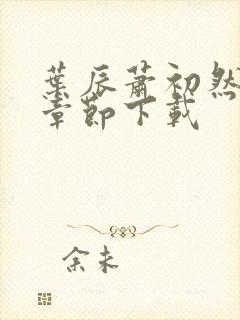 葉辰蕭初然
章節下載
余未